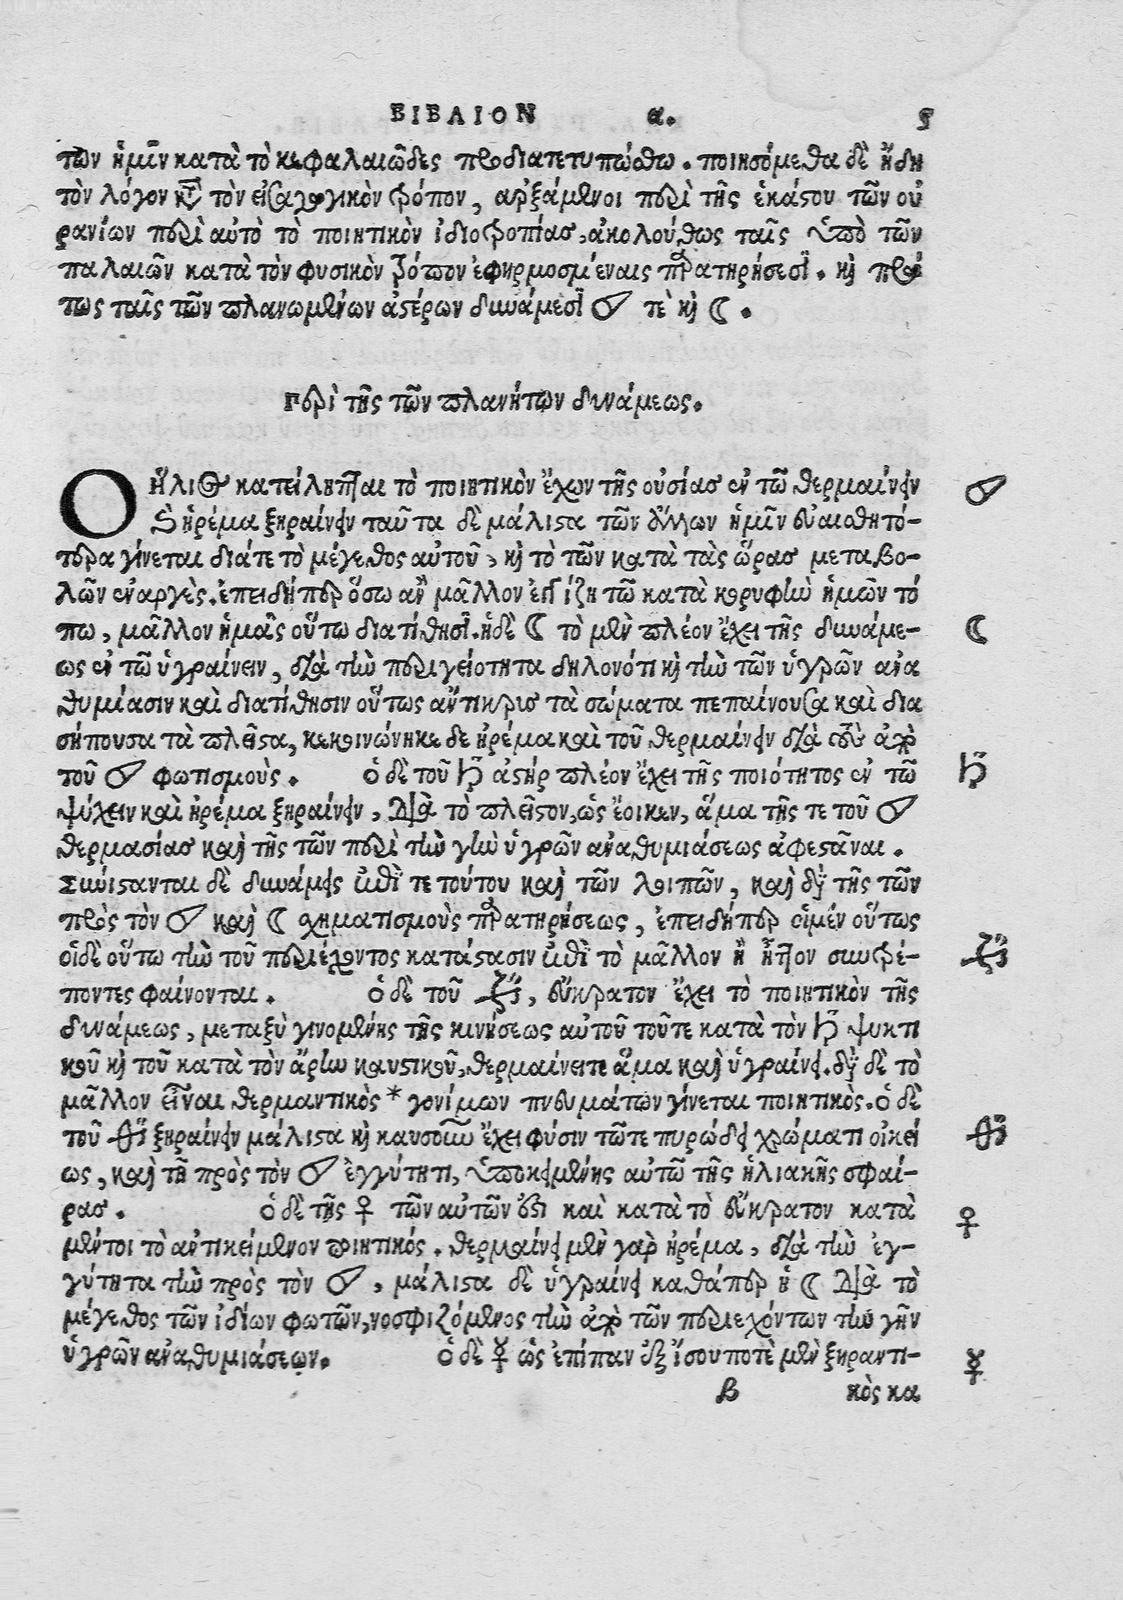 ΒΙΒΛΙΟΝ α. 5
των ἡμῖν κατὰ τὸ κεφαλαιῶδες προδιατετυπώσθω. ποιησόμεθα δὲ ἤδη
τὸν λόγον κτ̃ τὸν εἰσαγωγικὸν τρόπον, ἀρξάμενοι περὶ τῆς ἑκάστου τῶν οὐ
ρανίων περὶ αὐτὸ τὸ ποιητικὸν ἰδιοτροπίας, ἀκολούθως ταῖς ὑπὸ τῶν
παλαιῶν κατὰ τὸν φυσικὸν τρόπον ἐφηρμοσμέναις παρατηρήσεσι. καὶ πρώ
τως ταῖς τῶν πλανωμένων ἀστέρων δυνάμεσι ☉ τὲ καὶ ☾.
Περὶ τῆς τῶν πλανήτων δυνάμεως.
Ο ἥλιος κατείληπται τὸ ποιητικὸν ἔχων τῆς οὐσίας ἐν τῷ θερμαίνειν
καὶ ἠρέμα ξηραίνειν ταῦτα δὲ μάλιστα τῶν ἄλλων ἡμῖν εὐαισθητό-
τερα γίνεται διά τε τὸ μέγεθος αὐτοῦ, καὶ τὸ τῶν κατὰ τὰς ὥρας μεταβο-
λῶν ἐναργὲς. ἐπειδήπερ ὅσω ἂν μᾶλλον ἐγγίζη τῶ κατὰ κορυφὴν ἡμῶν τό
πω, μᾶλλον ἡμᾶς οὕτω διατίθησι. ἡ δὲ ☾ τὸ μὲν πλέον ἔχει τῆς δυνάμε-
ως ἐν τῶ ὑγραίνειν, διὰ τὴν περιγειότητα δηλονότι καὶ τὴν τῶν ὑγρῶν ανα
θυμίασιν καὶ διατίθησιν οὕτως ἄντικρις τὰ σώματα πεπαίνουσα καὶ δια
σήπουσα τὰ πλεῖστα, κεκοινώνηκε δε ἠρέμα καὶ τοῦ θερμαίνειν διὰ τοὺς ἀπὸ
τοῦ ☉ φωτισμοὺς. ὁ δὲ τοῦ ♄ ἀστήρ πλέον ἔχει τῆς ποιότητος ἐν τῶ
ψύχειν καὶ ἠρέμα ξηραίνειν, διὰ τὸ πλεῖστον, ὡς ἔοικεν, ἅμα τῆς τε τοῦ ☉
θερμασίας καὶ τῆς τῶν περὶ τὴν γῆν ὑγρῶν αναθυμιάσεως ἀφεστᾶναι.
Συνίστανται δὲ δυνάμεις ἐπὶ τε τούτου καὶ τῶν λοιπῶν, καὶ διὰ τῆς τῶν
πρὸς τὸν ☉ καὶ ☾ σχηματισμοὺς παρατηρήσεως, ἐπειδήπερ οἱ μέν οὕτως
οἱ δὲ οὕτω τὴν τοῦ περιέχοντος κατάστασιν ἐπὶ τὸ μᾶλλον ἢ ἧττον συντρέ-
ποντες φαίνονται. ὁ δὲ τοῦ ♃, εὔκρατον ἔχει τὸ ποιητικὸν τῆς
δυνάμεως, μεταξὺ γινομένης τῆς κινήσεως αὐτοῦ τοῦ τε κατὰ τὸν ♄ ψυκτι
κοῦ καὶ τοῦ κατὰ τὸν ἄρην καυστικοῦ, θερμαίνει τε ἅμα καὶ ὑγραίνει. διὰ δὲ τὸ
μᾶλλον εἶναι θερμαντικὸς * γονίμων πνευμάτων γίνεται ποιητικὸς. ὁ δὲ
τοῦ ♂ ξηραίνειν μάλιστα καὶ καυσοῦν ἔχει φύσιν τῶ τε πυρώδει χρώματι οἰκεί
ως, καὶ τῆ πρὸς τὸν ☉ ἐγγύτητι, ὑποκειμένης αὐτῶ τῆς ἡλιακῆς σφαί-
ρας. ὁ δὲ τῆς ♀ τῶν αὐτῶν ἐστι καὶ κατὰ τὸ εὔκρατον κατὰ
μέντοι τὸ αντικείμενον ποιητικός. θερμαίνει μὲν γαρ ἠρέμα, διὰ τὴν ἐγ-
γύτητα τὴν πρὸς τὸν ☉, μάλιστα δὲ ὑγραίνει καθάπερ ἡ ☾ διὰ τὸ
μέγεθος τῶν ἰδίων φωτῶν, νοσφιζόμενος τὴν ἀπὸ τῶν περιεχόντων τὴν γῆν
ὑγρῶν αναθυμιάσεων. ὁ δὲ ☿ ὡς ἐπίπαν ἐξ ἴσου ποτὲ μὲν ξηραντι-
β κὸς κα
☉
☾
♄
♃
♂
♀
☿